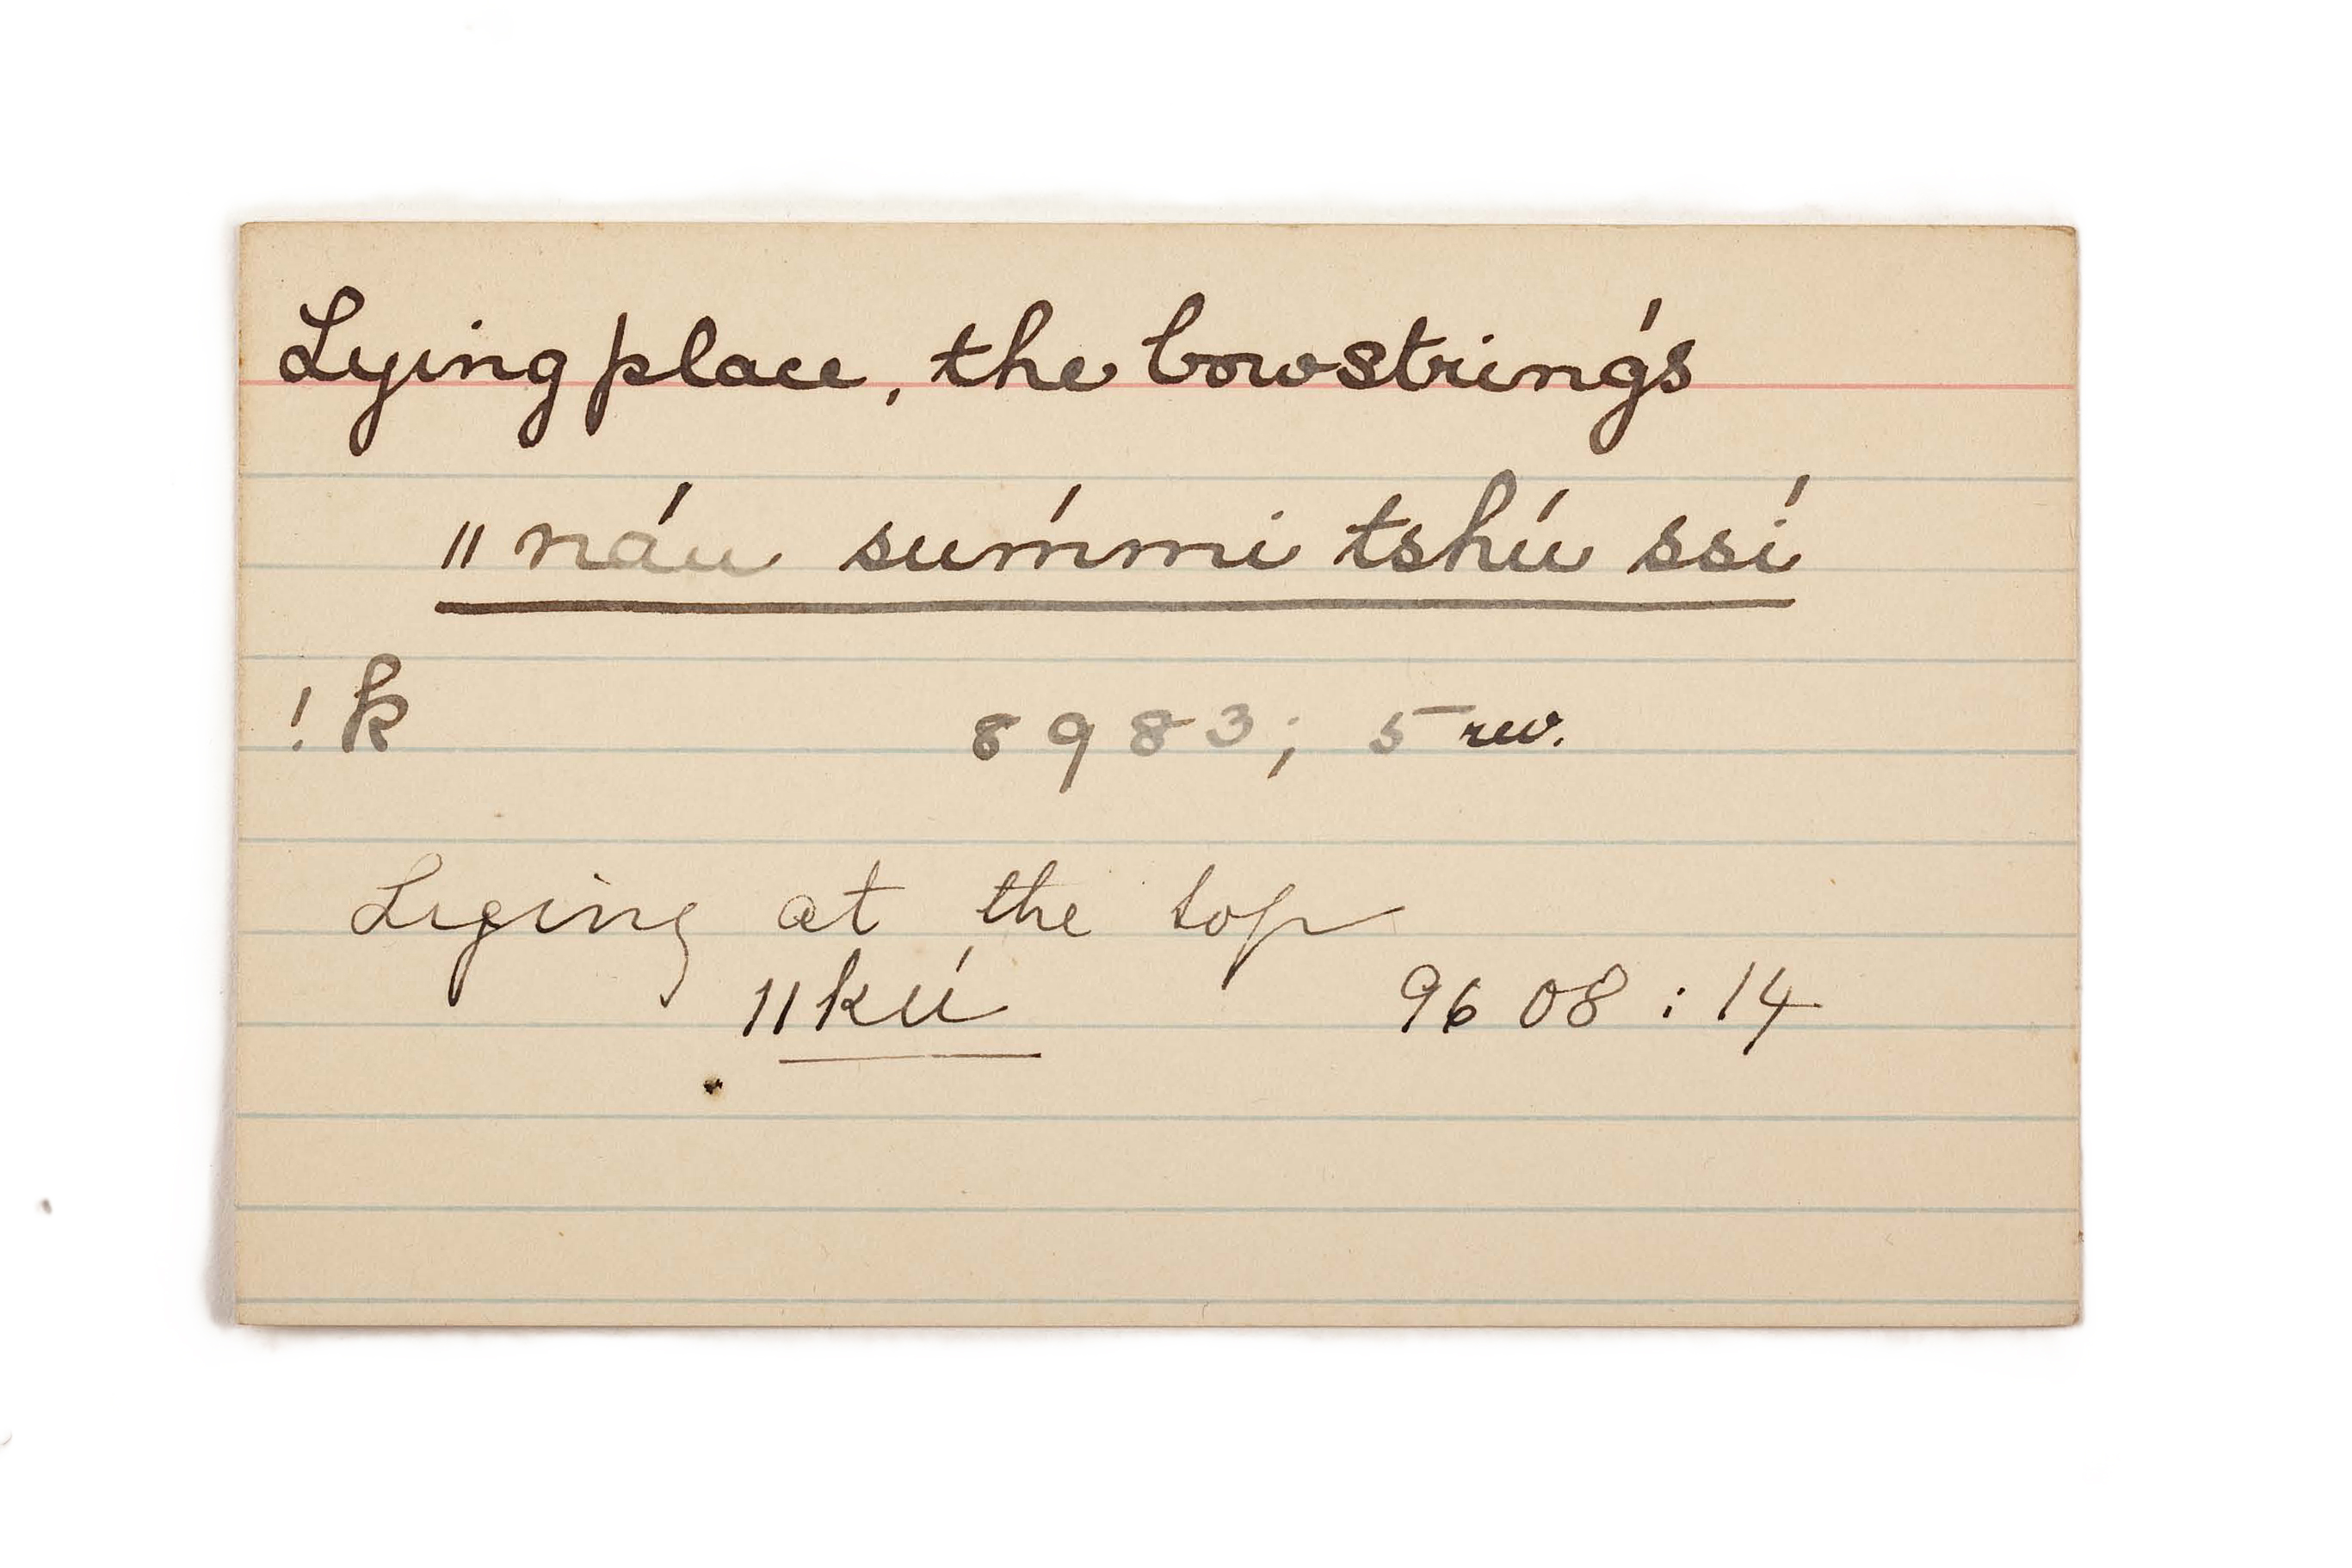 Lying place, the bowstring's
ǁ náu súmmi tshú ssí
! k 8983; 5 rev.
Lying at the top
ǁkú 9608 : 14